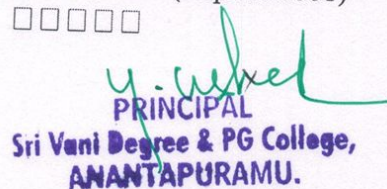 PRINCIPAL
Sri Vani Degree & PG College,
ANANTAPURAMU.